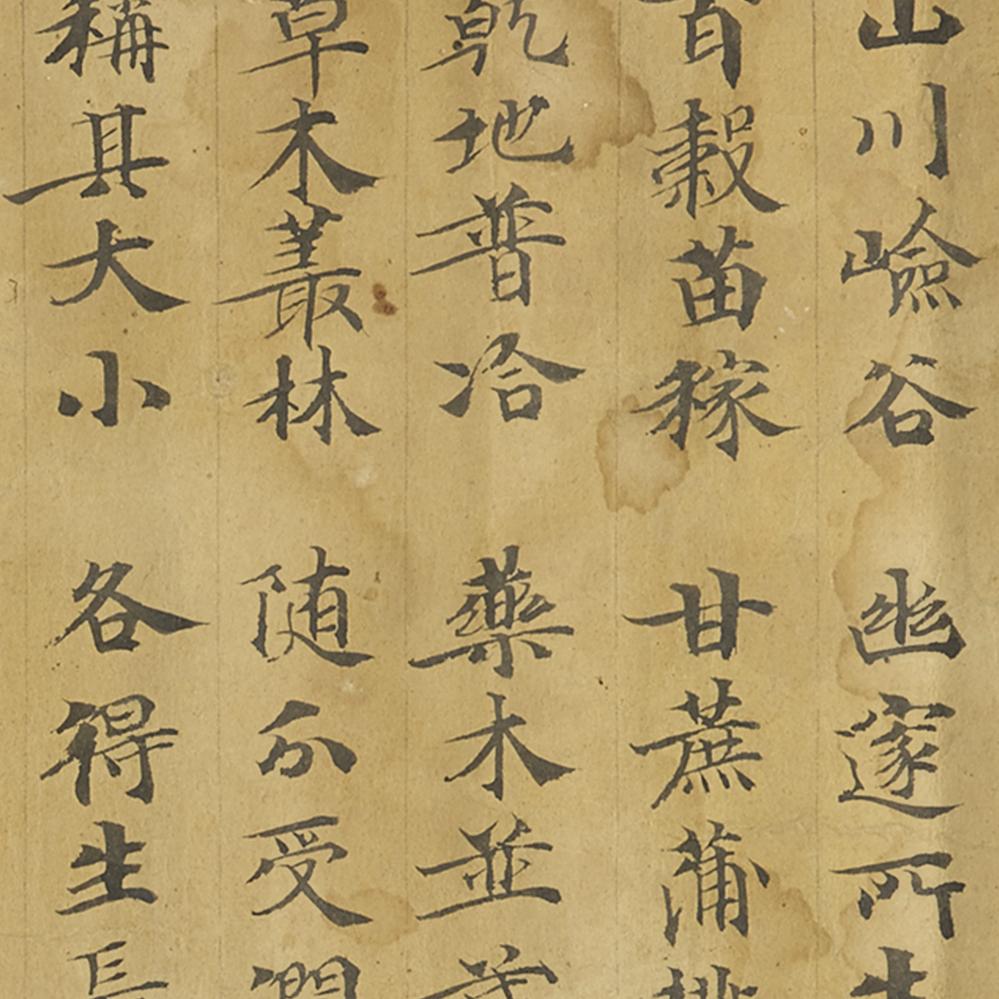 山川嶮谷 幽邃所生
百穀苗稼 甘蔗蒲桃
乾地普洽 藥木並茂
草木叢林 随分受潤
稱其大小 各得生長